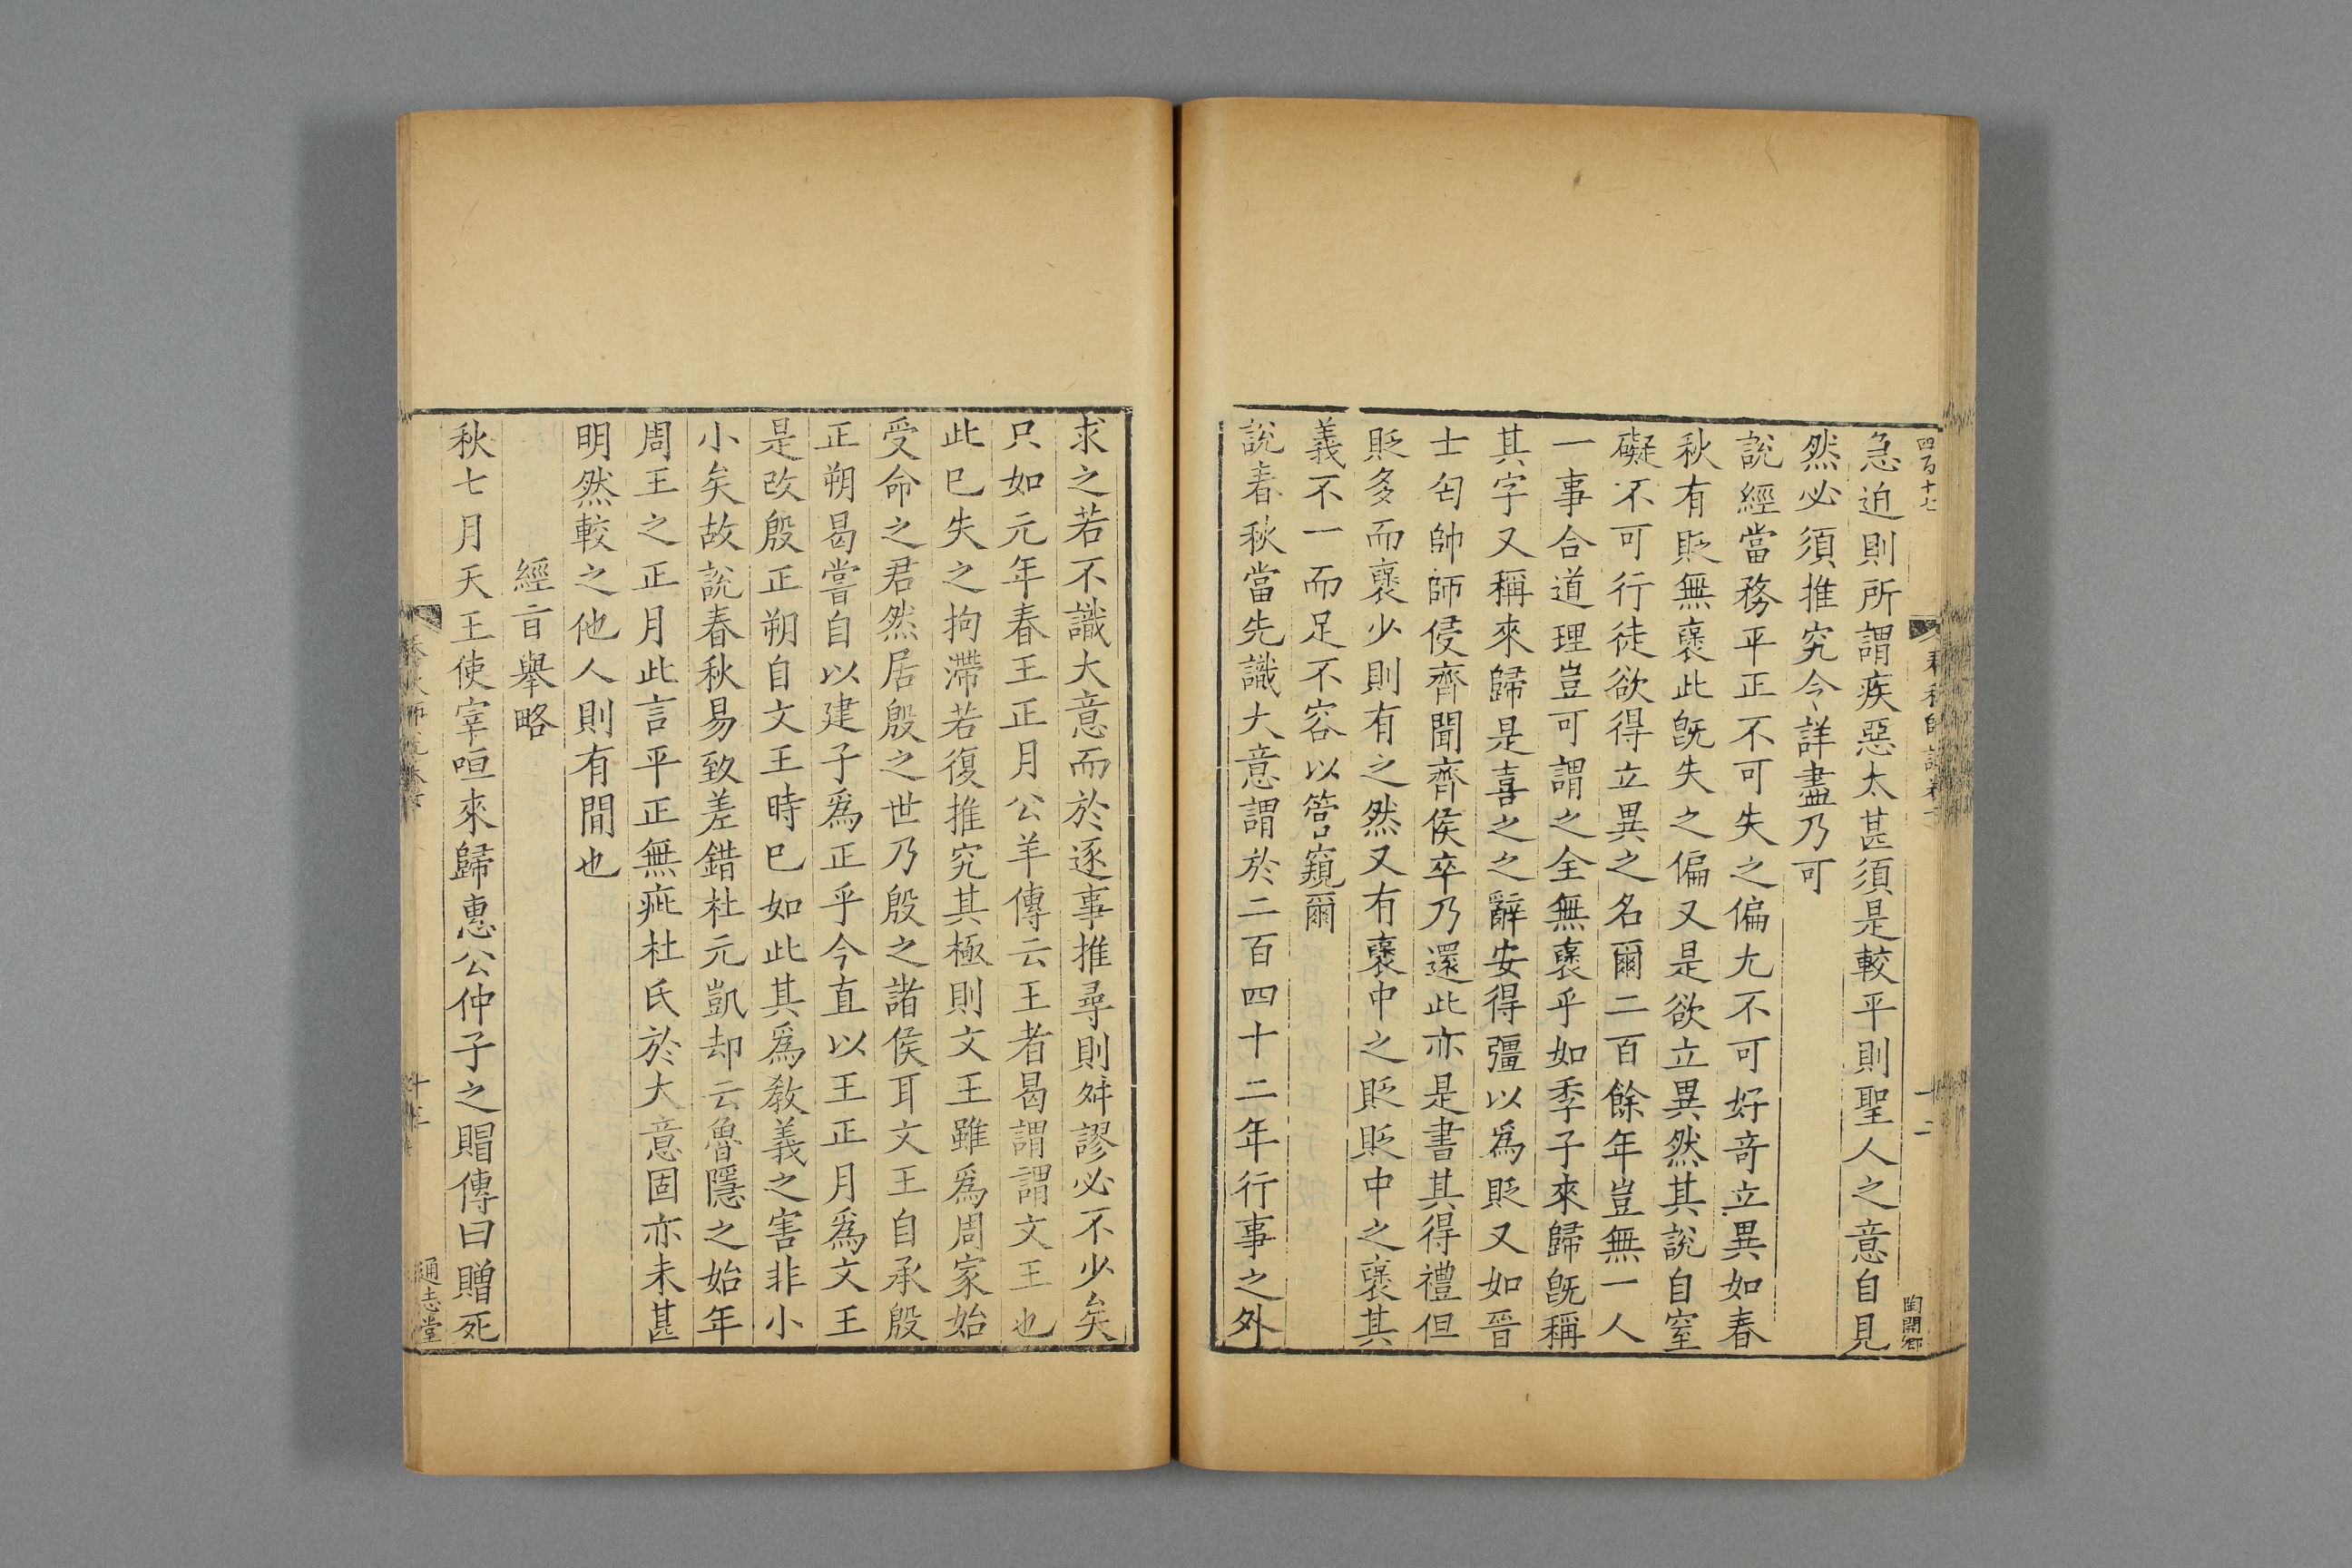 四百十七
急迫則所謂疾惡太甚須是較平則聖人之意自見
然必須推究今詳盡乃可
說經當務平正不可失之偏尤不可好奇立異如春
秋有貶無襃此旣失之偏又是欲立異然其說自窒
礙不可行徒欲得立異之名爾二百餘年豈無一人
一事合道理豈可謂之全無襃乎如季子來歸旣稱
其字又稱來歸是喜之之辭安得彊以爲貶又如晉
士匄帥師侵齊聞齊侯卒乃還此亦是書其得禮但
貶多而襃少則有之然又有襃中之貶貶中之襃其
義不一而足不容以管窺爾
說春秋當先識大意謂於二百四十二年行事之外
求之若不識大意而於逐事推尋則舛謬必不少矣
只如元年春王正月公羊傳云王者曷謂謂文王也
此已失之拘滯若復推究其極則文王雖爲周家始
受命之君然居殷之世乃殷之諸侯耳文王自承殷
正朔曷嘗自以建子爲正乎今直以王正月爲文王
是改殷正朔自文王時已如此其爲敎義之害非小
小矣故說春秋易致差錯杜元凱却云魯隱之始年
周王之正月此言平正無疵杜氏於大意固亦未甚
明然較之他人則有間也
經旨舉略
秋七月天王使宰咺來歸惠公仲子之賵傳曰贈死
通志堂